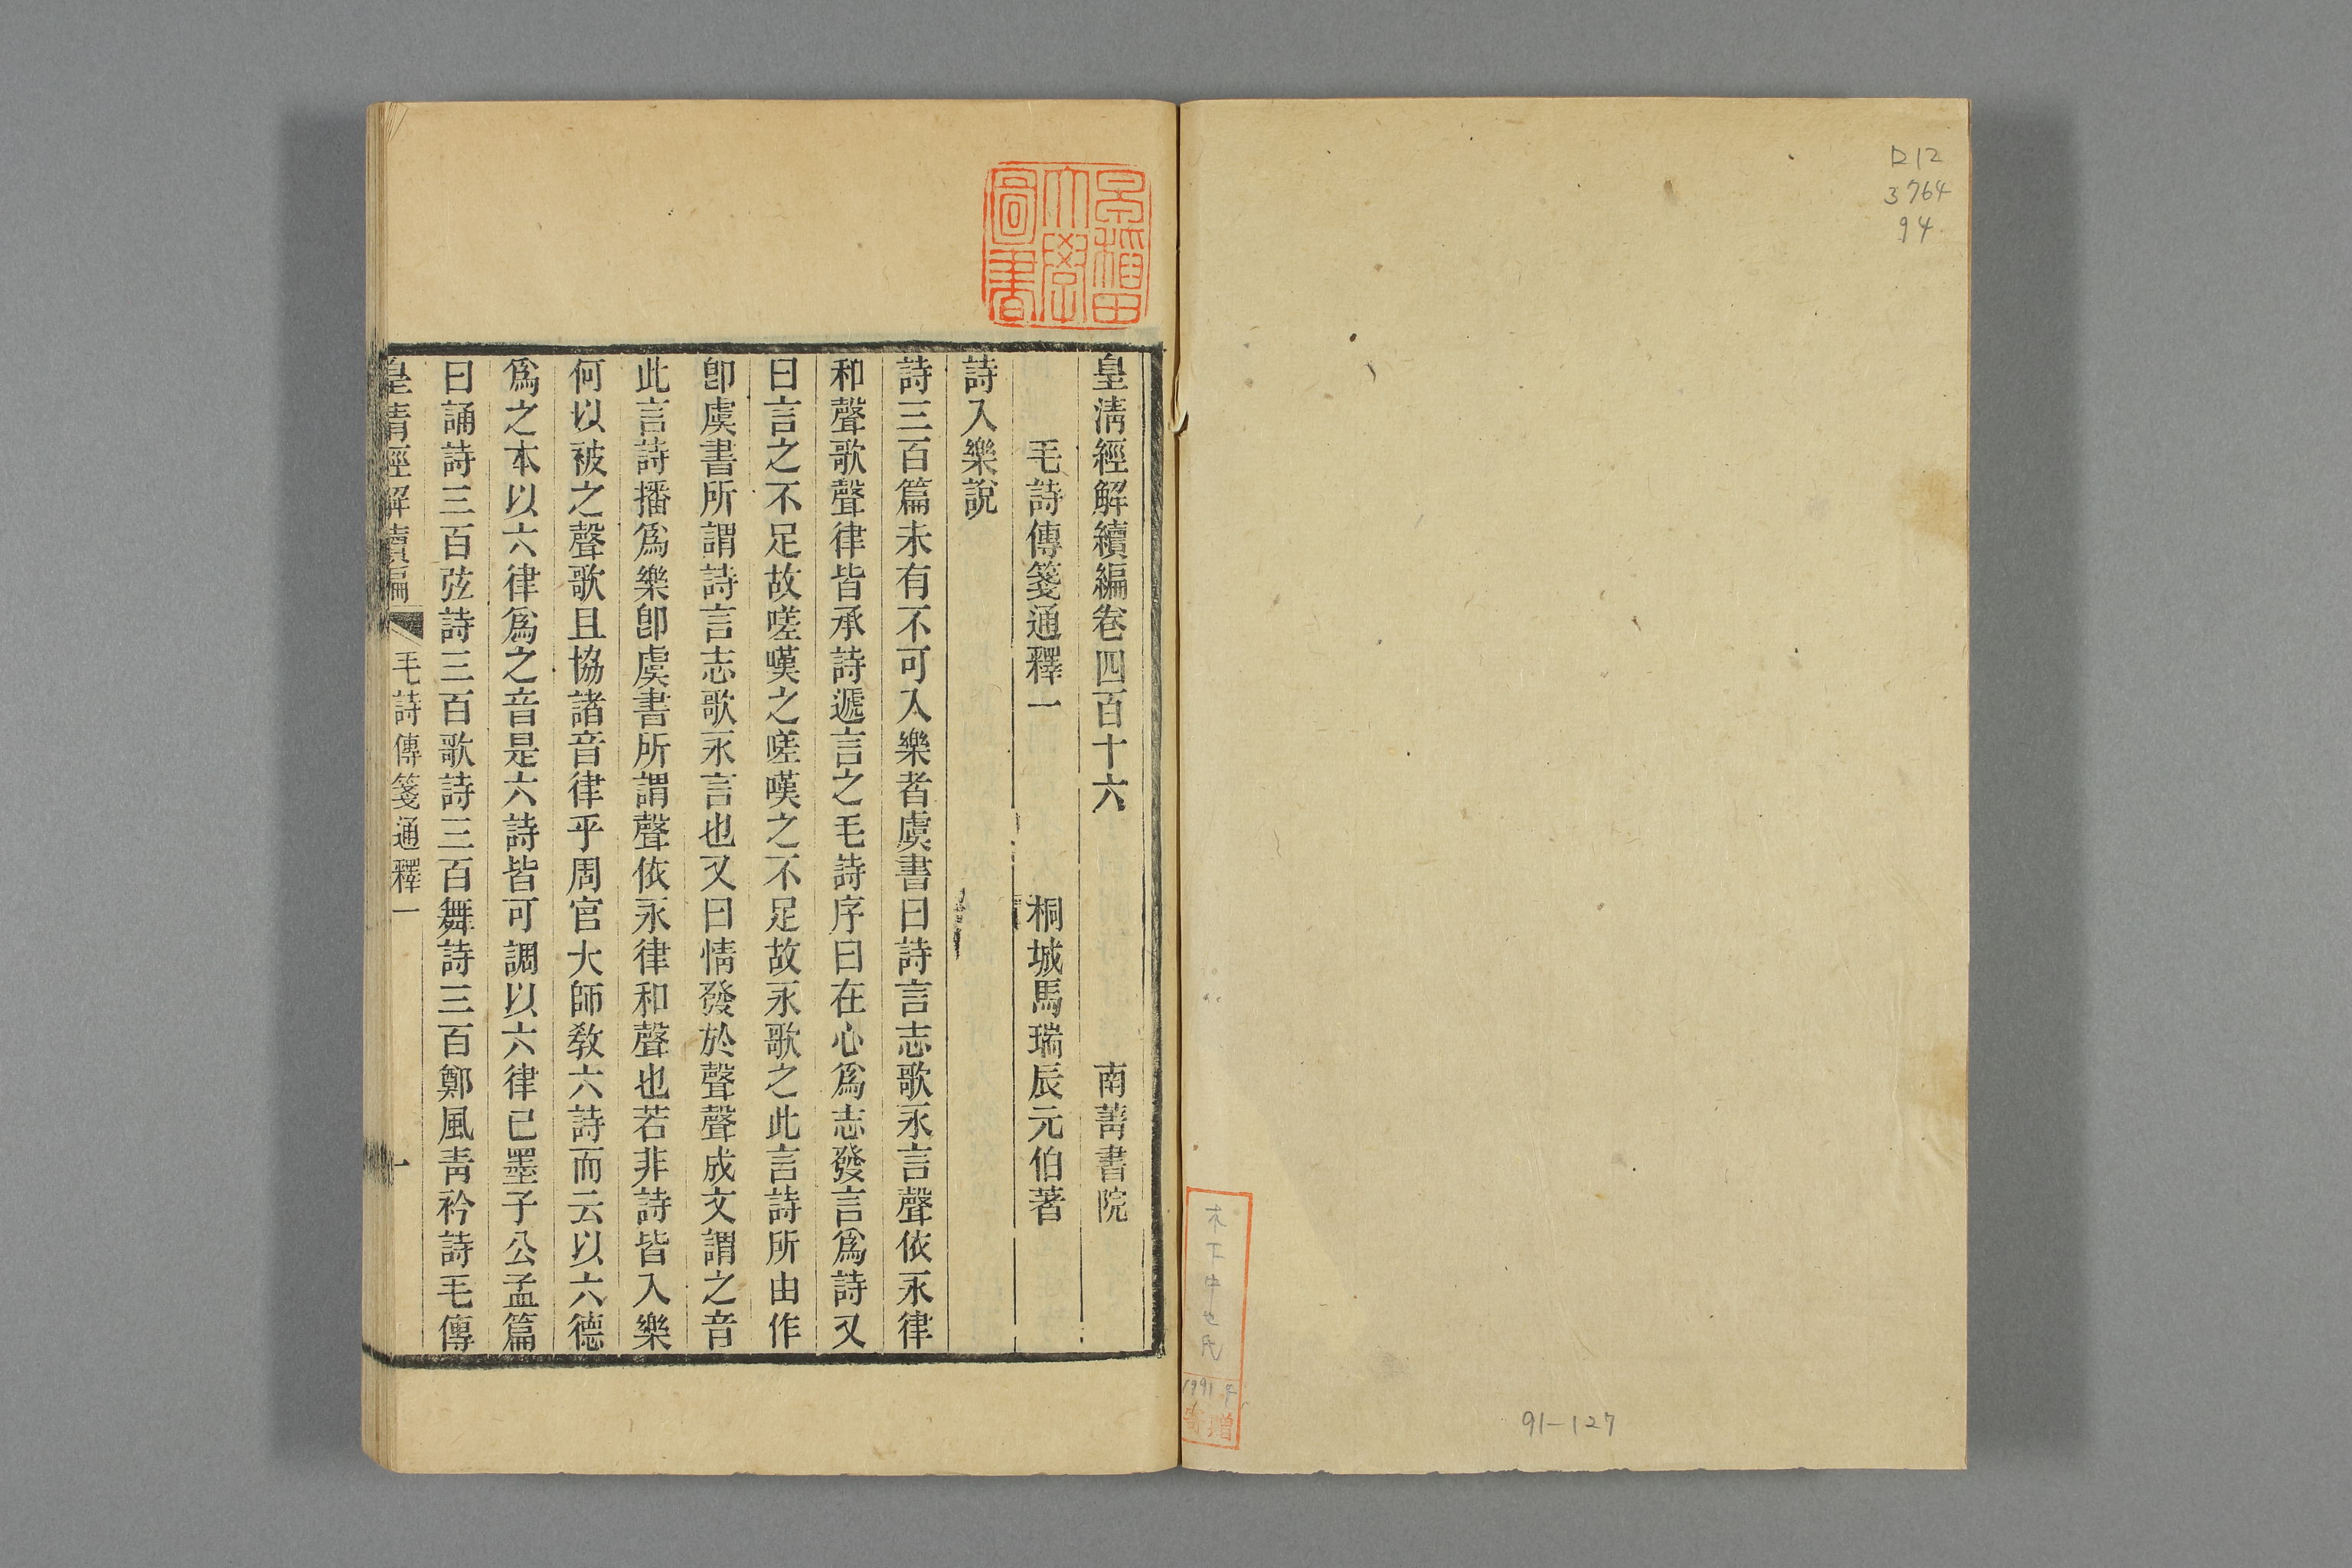 ロ12
3764
94
木下中也氏
1991年
寄贈
91-127
早稻田
大學
圖書
皇淸經解續編卷四百十六 南菁書院
毛詩傳箋通釋一 桐城馬瑞辰元伯著
詩入樂說
詩三百篇未有不可入樂者虞書曰詩言志歌永言聲依永律
和聲歌聲律皆承詩遞言之毛詩序曰在心爲志發言爲詩又
曰言之不足故嗟嘆之嗟嘆之不足故永歌之此言詩所由作
卽虞書所謂詩言志歌永言也又曰情發於聲聲成文謂之音
此言詩播爲樂卽虞書所謂聲依永律和聲也若非詩皆入樂
何以被之聲歌且協諸音律乎周官大師敎六詩而云以六德
爲之本以六律爲之音是六詩皆可調以六律已墨子公孟篇
曰誦詩三百弦詩三百歌詩三百舞詩三百鄭風靑衿詩毛傳
皇淸經解續編 毛詩傳箋通釋一 一